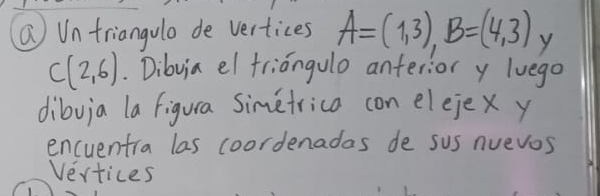 ⓐ Un triangulo de vertices A=(1,3), B=(4,3) y
C(2,6). Dibuja el triángulo anterior y luego
dibuja la figura Simétrica con el eje X y
encuentra las coordenadas de sus nuevos
Vértices